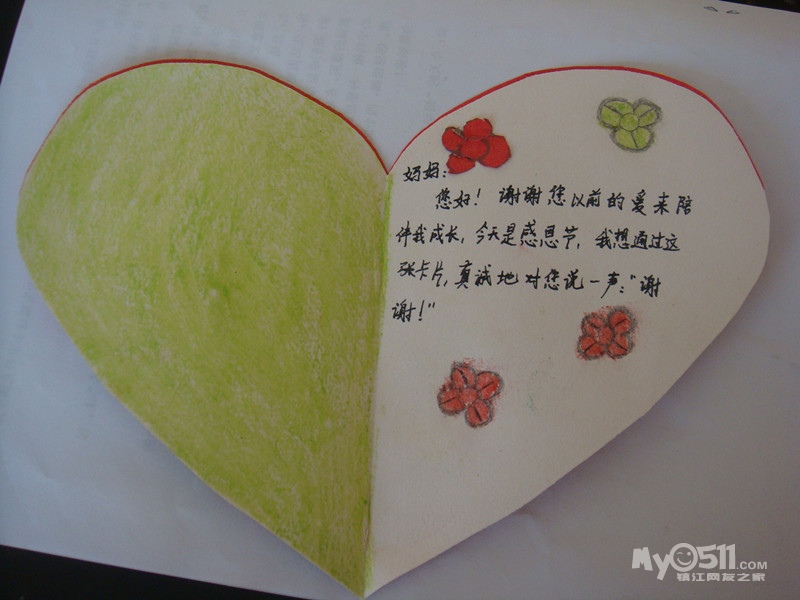 妈妈:
您好! 谢谢您以前的爱来陪
伴我成长,今天是感恩节,我想通过这
张卡片,真诚地对您说一声:"谢
谢!"
MyO511.COM
镇江网友之家